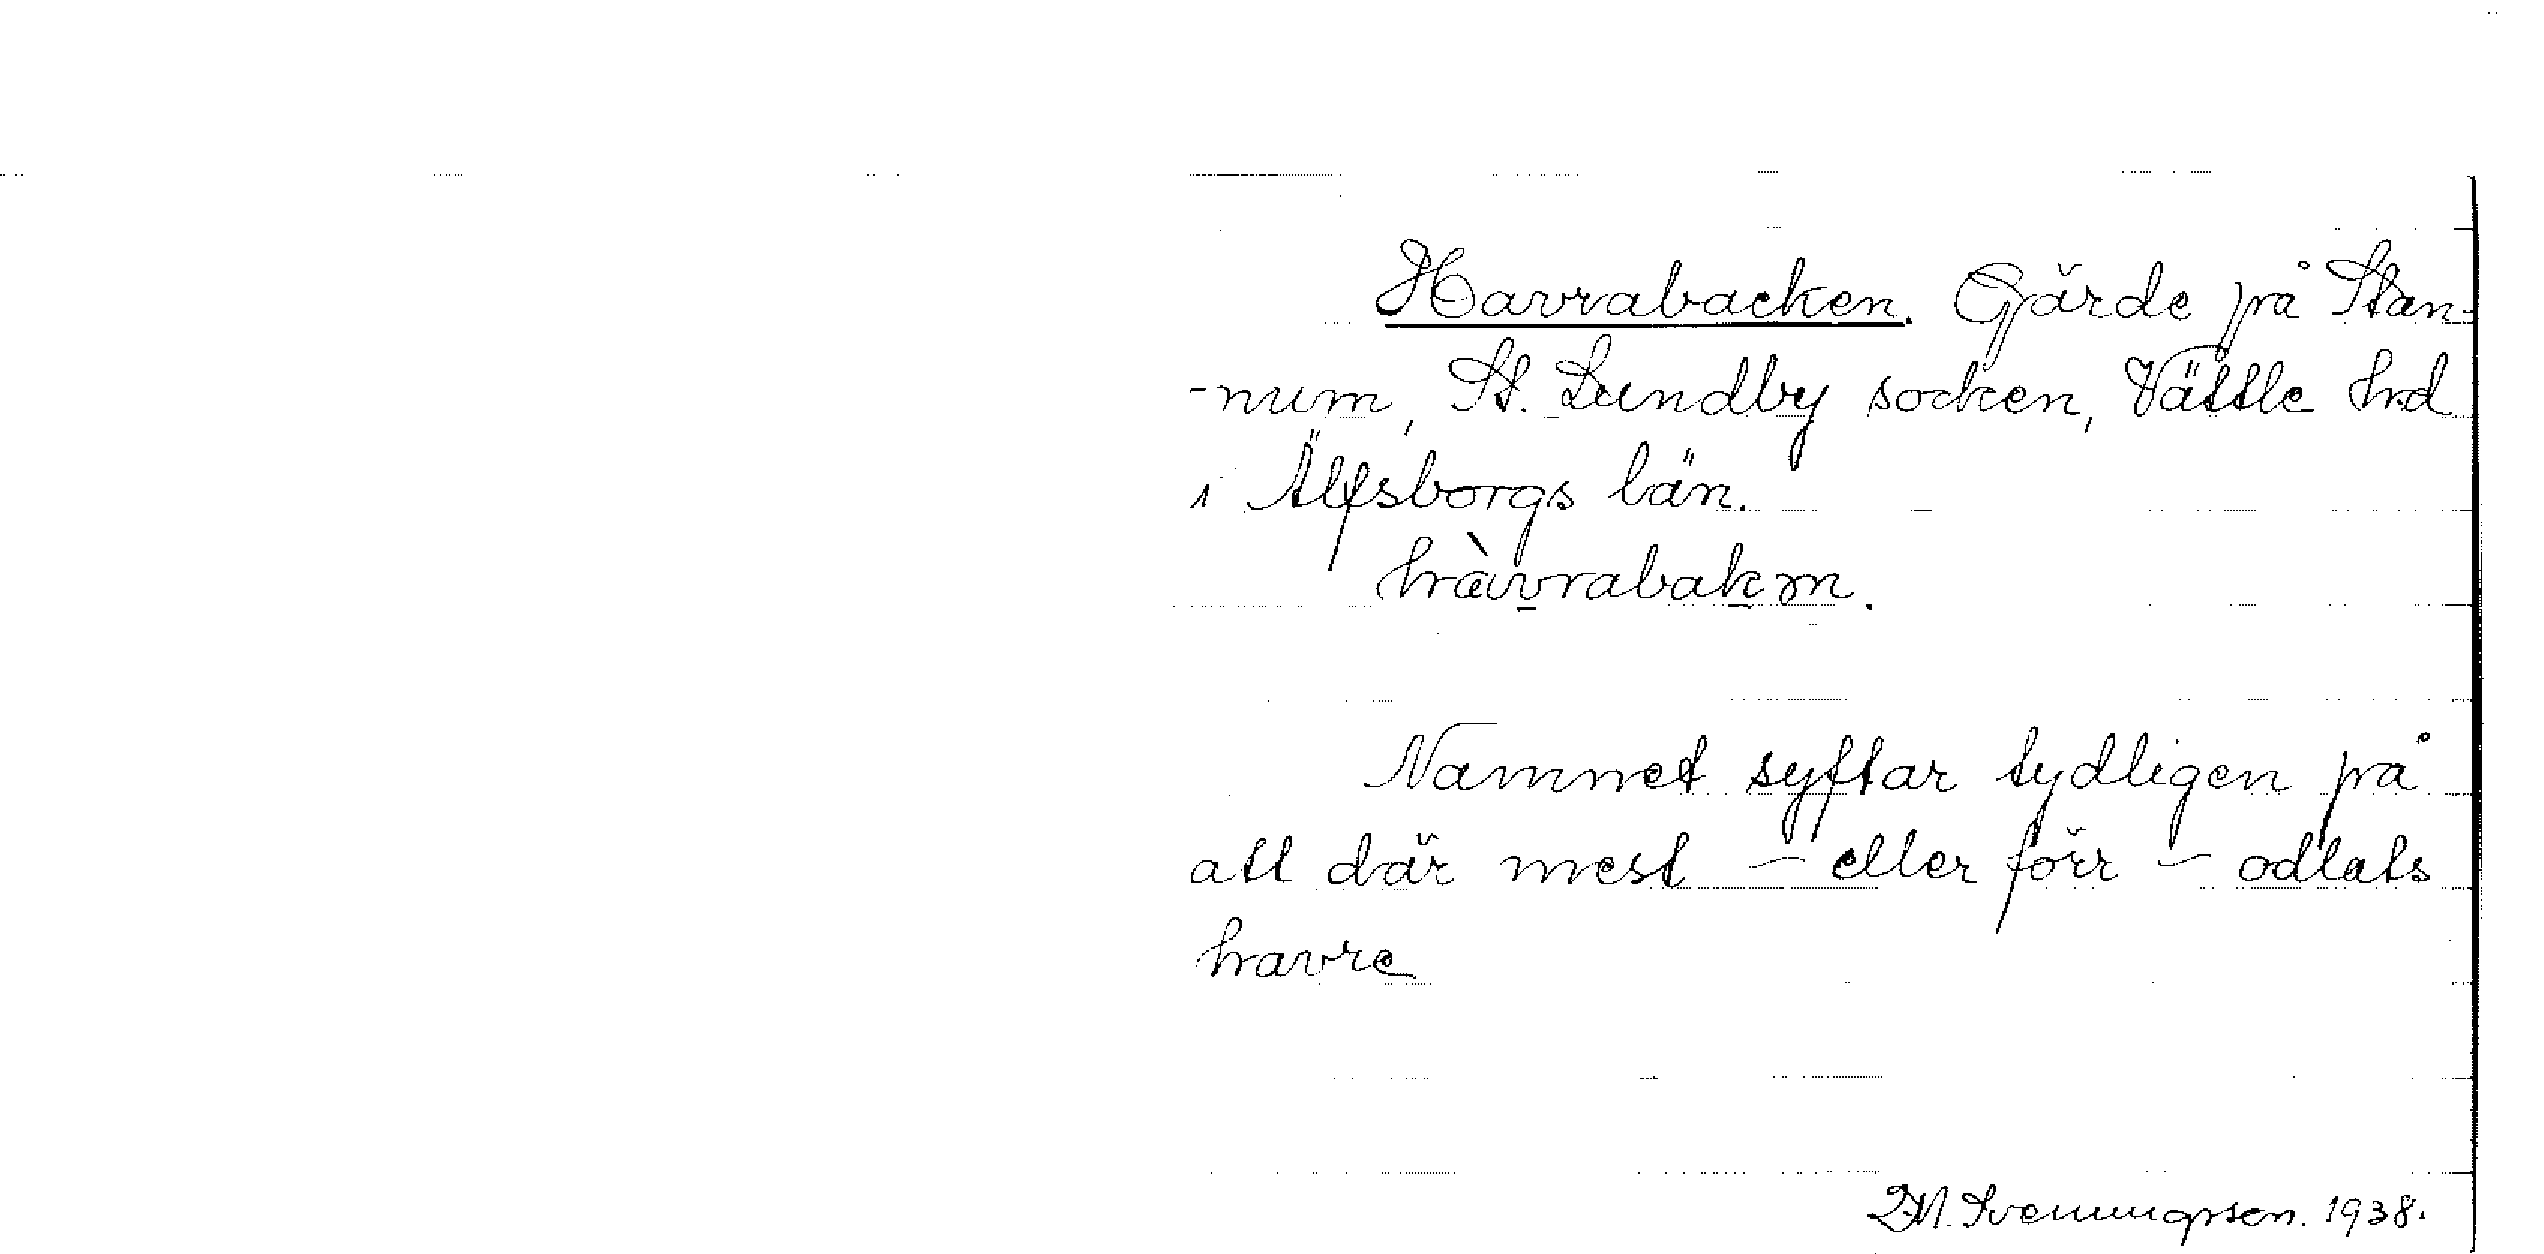 Havrabacken. Gärde på Stan-
-num, St. Lundby socken, Vättle hrd
i Älfsborgs län.
hàvrabakən.
Namnet syftar tydligen på
att där mest – eller förr – odlats
havre
Svenungsson. 1938.